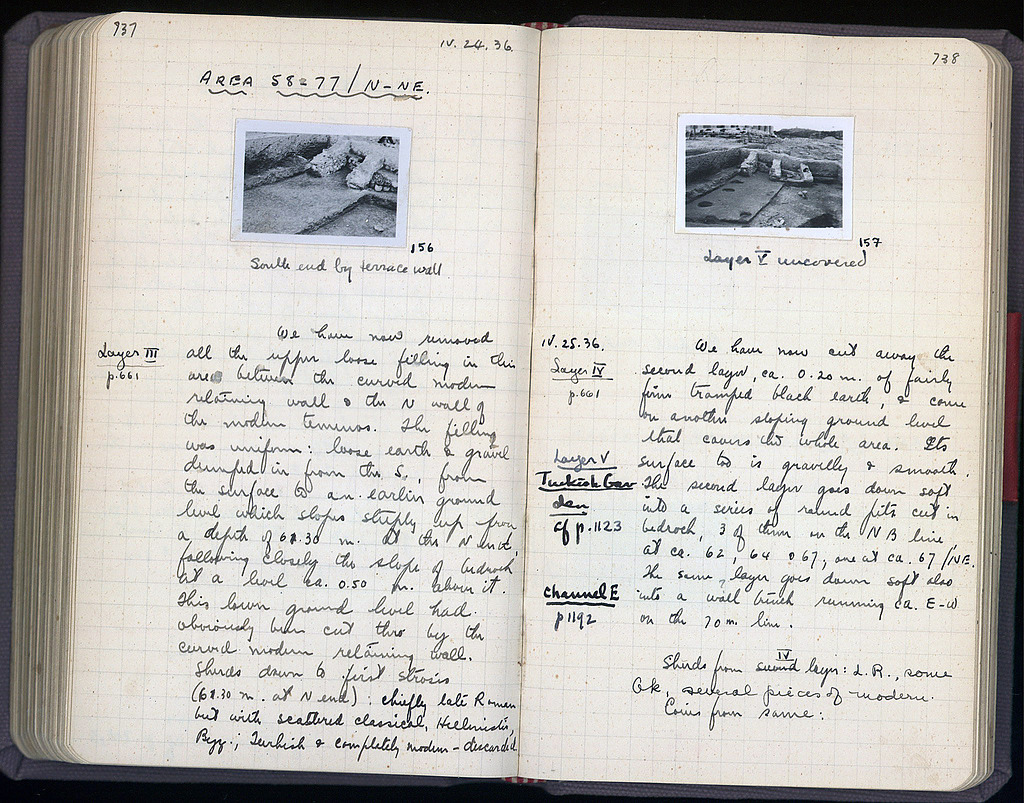 937
IV. 24. 36.
AREA 58-77/N-NE.
156
South end by terrace wall
Layer III
p.661
We have now removed
all the upper loose filling in this
area between the curved modern
retaining wall & the N wall of
the modern temenos. The filling
was uniform: loose earth & gravel
dumped in from the S, from
the surface to an earlier ground
level which slopes steeply up from
a depth of 68.30 m. at the N end,
following closely the slope of bedrock
at a level ca. 0.50 m. above it.
This lower ground level had
obviously been cut thro by the
curved modern retaining wall.
Sherds down to first strosis
(68.30 m. at N end): chiefly late Roman
but with scattered classical, Hellenistic,
Byz., Turkish & completely modern - discarded
738
157
Layer V uncovered
IV. 25. 36.
Layer IV
p.661
We have now cut away the
second layer, ca. 0.20 m. of fairly
firm tramped black earth, & come
on another sloping ground level
that covers the whole area. Its
surface too is gravelly & smooth.
Layer V
Turkish Gar
den
cf p.1123
The second layer goes down soft
into a series of round pits cut in
bedrock, 3 of them on the NB line,
at ca. 62, 64, & 67, one at ca. 67/NE.
The same layer goes down soft also
Channel E
p1192
into a wall trench running ca. E-W
on the 70 m. line.
IV
Sherds from second layer: L.R., some
Gk, several pieces of modern.
Coins from same: